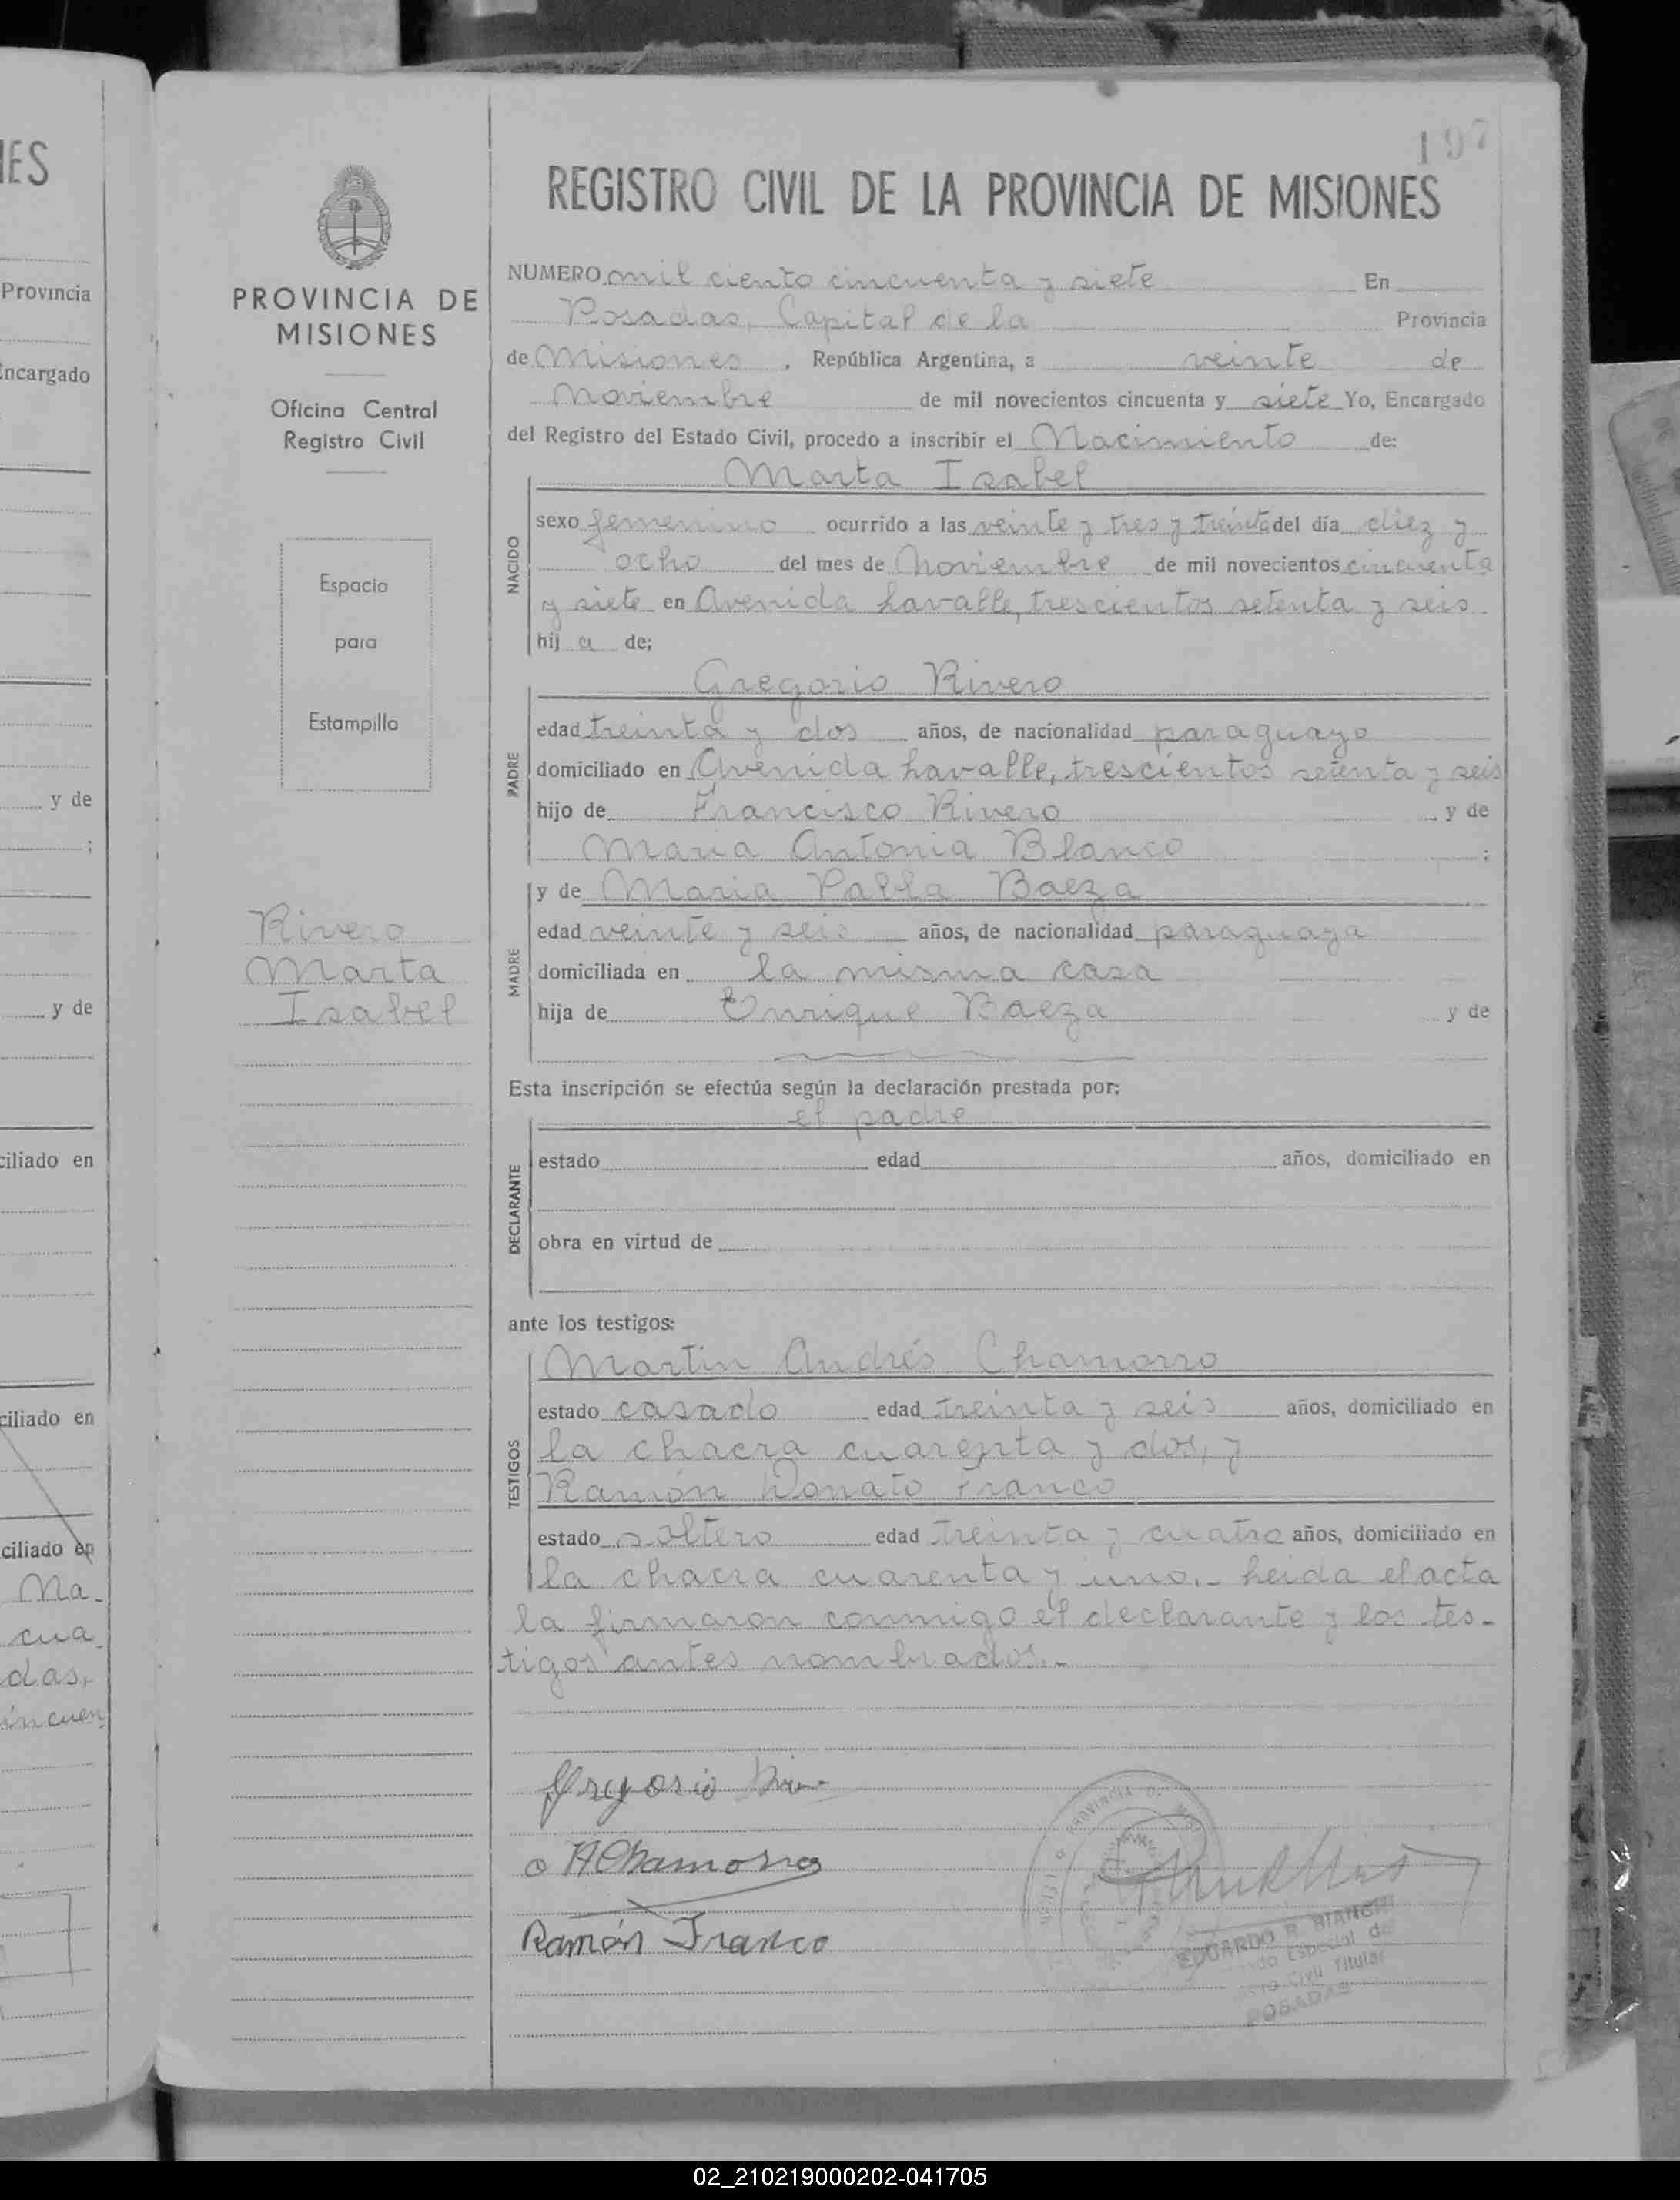 IES
Provincia
Encargado
y de
;
y de
ciliado en
ciliado en
ciliado en
Na-
cua-
das,
incuen
PROVINCIA DE
MISIONES
Oficina Central
Registro Civil
Espacio
para
Estampilla
Rivero
Marta
Isabel
197
REGISTRO CIVIL DE LA PROVINCIA DE MISIONES
NUMERO mil ciento cincuenta y siete En
Posadas, Capital de la Provincia
de Misiones, República Argentina, a veinte de
Noviembre de mil novecientos cincuenta y siete Yo, Encargado
del Registro del Estado Civil, procedo a inscribir el Nacimiento de:
NACIDO
Marta Isabel
sexo femenino ocurrido a las veinte y tres y treinta del día diez y
ocho del mes de Noviembre de mil novecientos cincuenta
y siete en Avenida Lavalle, trescientos setenta y seis
hij a de;
PADRE
Gregorio Rivero
edad treinta y dos años, de nacionalidad paraguayo
domiciliado en Avenida Lavalle, trescientos setenta y seis
hijo de Francisco Rivero y de
Maria Antonia Blanco ;
MADRE
y de Maria Pabla Baeza
edad veinte y seis años, de nacionalidad paraguaya
domiciliada en la misma casa
hija de Enrique Baeza y de
Esta inscripción se efectúa según la declaración prestada por:
DECLARANTE
el padre
estado edad años, domiciliado en
obra en virtud de
ante los testigos:
TESTIGOS
Martin Andrés Chamorro
estado casado edad treinta y seis años, domiciliado en
la chacra cuarenta y dos, y
Ramón Donato Franco
estado soltero edad treinta y cuatro años, domiciliado en
la chacra cuarenta y uno.- Leida el acta
la firmaron conmigo el declarante y los tes-
tigos antes nombrados.-
Gregorio
Chamorro
Ramón Franco
PROVINCIA DE
EDUARDO R. BIANCHI
Especial de
Civil Titular
POSADAS
02_210219000202-041705